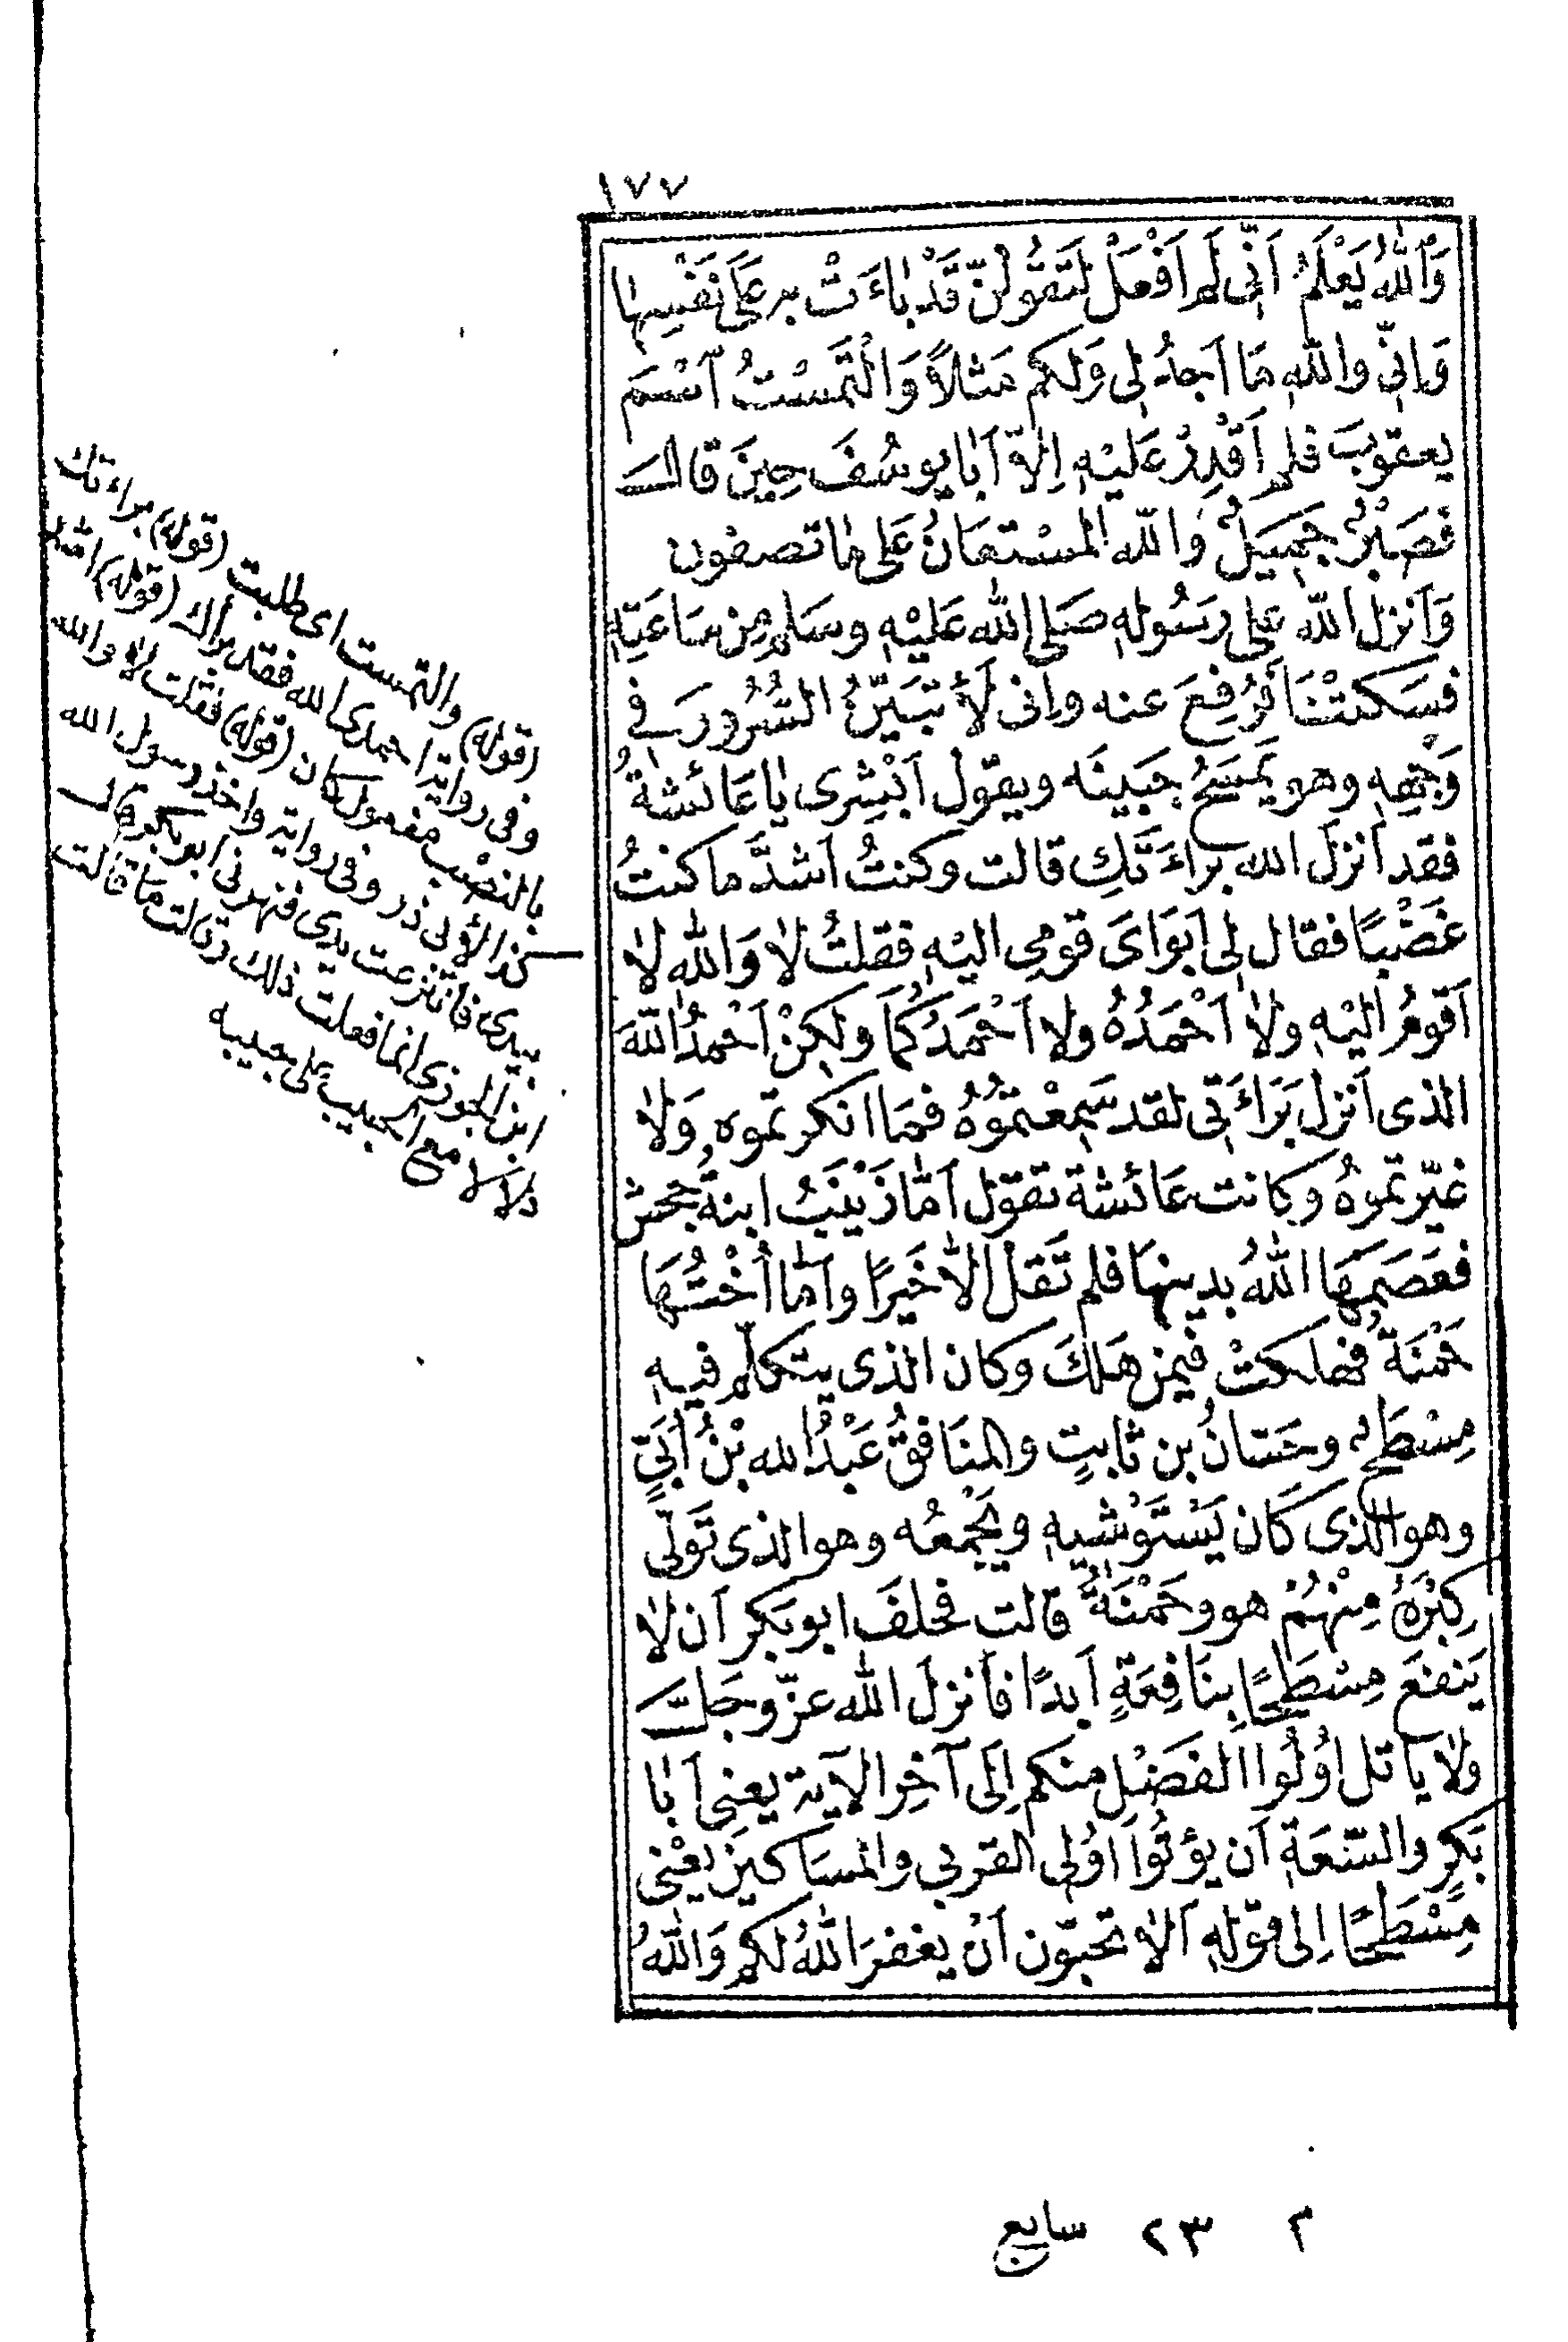 ١٧٧
وَاللّٰهُ يَعْلَمُ اَنِّى لَمْ اَفْعَلْ لَتَقُولُنَّ قَدْ بَاءَتْ بِهِ عَلَى نَفْسِهَا
وَاِنِّى وَاللّٰهِ مَا اَجِدُ لِى وَلَكُمْ مَثَلاً وَالْتَمَسْتُ اسْمَ
يعقوبَ فلم اَقْدِرْ عَلَيْهِ اِلاَّ اَبَا يوسُفَ حِينَ قالَ
فَصَبْرٌ جَمِيلٌ وَاللّٰه المسْتعَانُ عَلى مَا تصفون
وَاَنزلَ اللّٰه على رسُولِهِ صَلى اللّٰه عَليْهِ وسَلم مِنْ سَاعَتِهِ
فسَكَتْنَا فَرُفِعَ عنه وانى لَأَتَبَيَّنُ السُّرُورَ فى
وَجْهِهِ وهو يَمْسَحُ جَبِينَه ويقول اَبْشِرِى يَا عَائشةُ
فقد اَنزلَ اللّٰه بَراءَتَكِ قالت وكنتُ اَشدَّ ما كنتُ
غَضَبًا فقال لى اَبَوَاىَ قومى اليْهِ فقلتُ لا وَاللّٰه لا
اَقومُ اليْهِ ولا اَحْمَدُهُ ولا اَحْمَدُكُمَا ولكِنْ اَحْمَدُ اللّٰهَ
الذى اَنزل بَرَاءَتِى لقد سَمِعْتمُوُهُ فمَا انكرتموه وَلا
غيّرتموهُ وكانت عَائشة تقول اَمّا زَيْنَبُ ابنةُ جحش
فعَصَمَهَا اللّٰهُ بدِينِهَا فلم تَقُلْ الاَّ خَيرًا واَمَّا اُخْتُهَا
حَمْنَةُ فهلكتْ فيمن هَلَكَ وكان الذى يتكلّم فيهِ
مِسْطَحٌ وحَسّانُ بن ثابتٍ والمنَافقُ عَبْدُ اللّٰه بْنُ اُبَىٍّ
وهو الذى كَان يَسْتَوْشِيهِ ويَجْمَعُه وهو الذى تَوَلّى
كِبْرَهُ مِنْهُمْ هو وحَمْنَةُ قالت فحلفَ ابو بَكر اَن لا
يَنفعَ مِسْطَحًا بِنَافِعَةٍ اَبدًا فاَنزلَ اللّٰه عزّ وجَلَّ
ولا ياَتل اوُلُوا الفَضْلِ منكم اِلَى آخِرِ الآية يعنى اَبَا
بَكرٍ والسَّعَةِ اَن يؤتُوا اوُلِى القربى والمسَاكينَ يعْنى
مِسْطَحًا اِلى قوْلِهِ اَلا تحبّون اَنْ يغفرَ اللّٰهُ لكم وَاللّٰهُ
(قوله) والتمست اى طلبت (قوله) براءتك
وفى رواية احمدى الله فقد براك (قوله) اشد
بالنصب مفعول كان (قوله) فقلت لا والله
كذا لأبى ذر وفى رواية واخذ رسول الله
بيدى فانتزعت يدى فنهرنى ابو بكر قال
ابن الجوزى انما فعلت ذلك وقالت ما قالت
دلالا مع الحبيب على حبيبه
م ٢٣ سابع